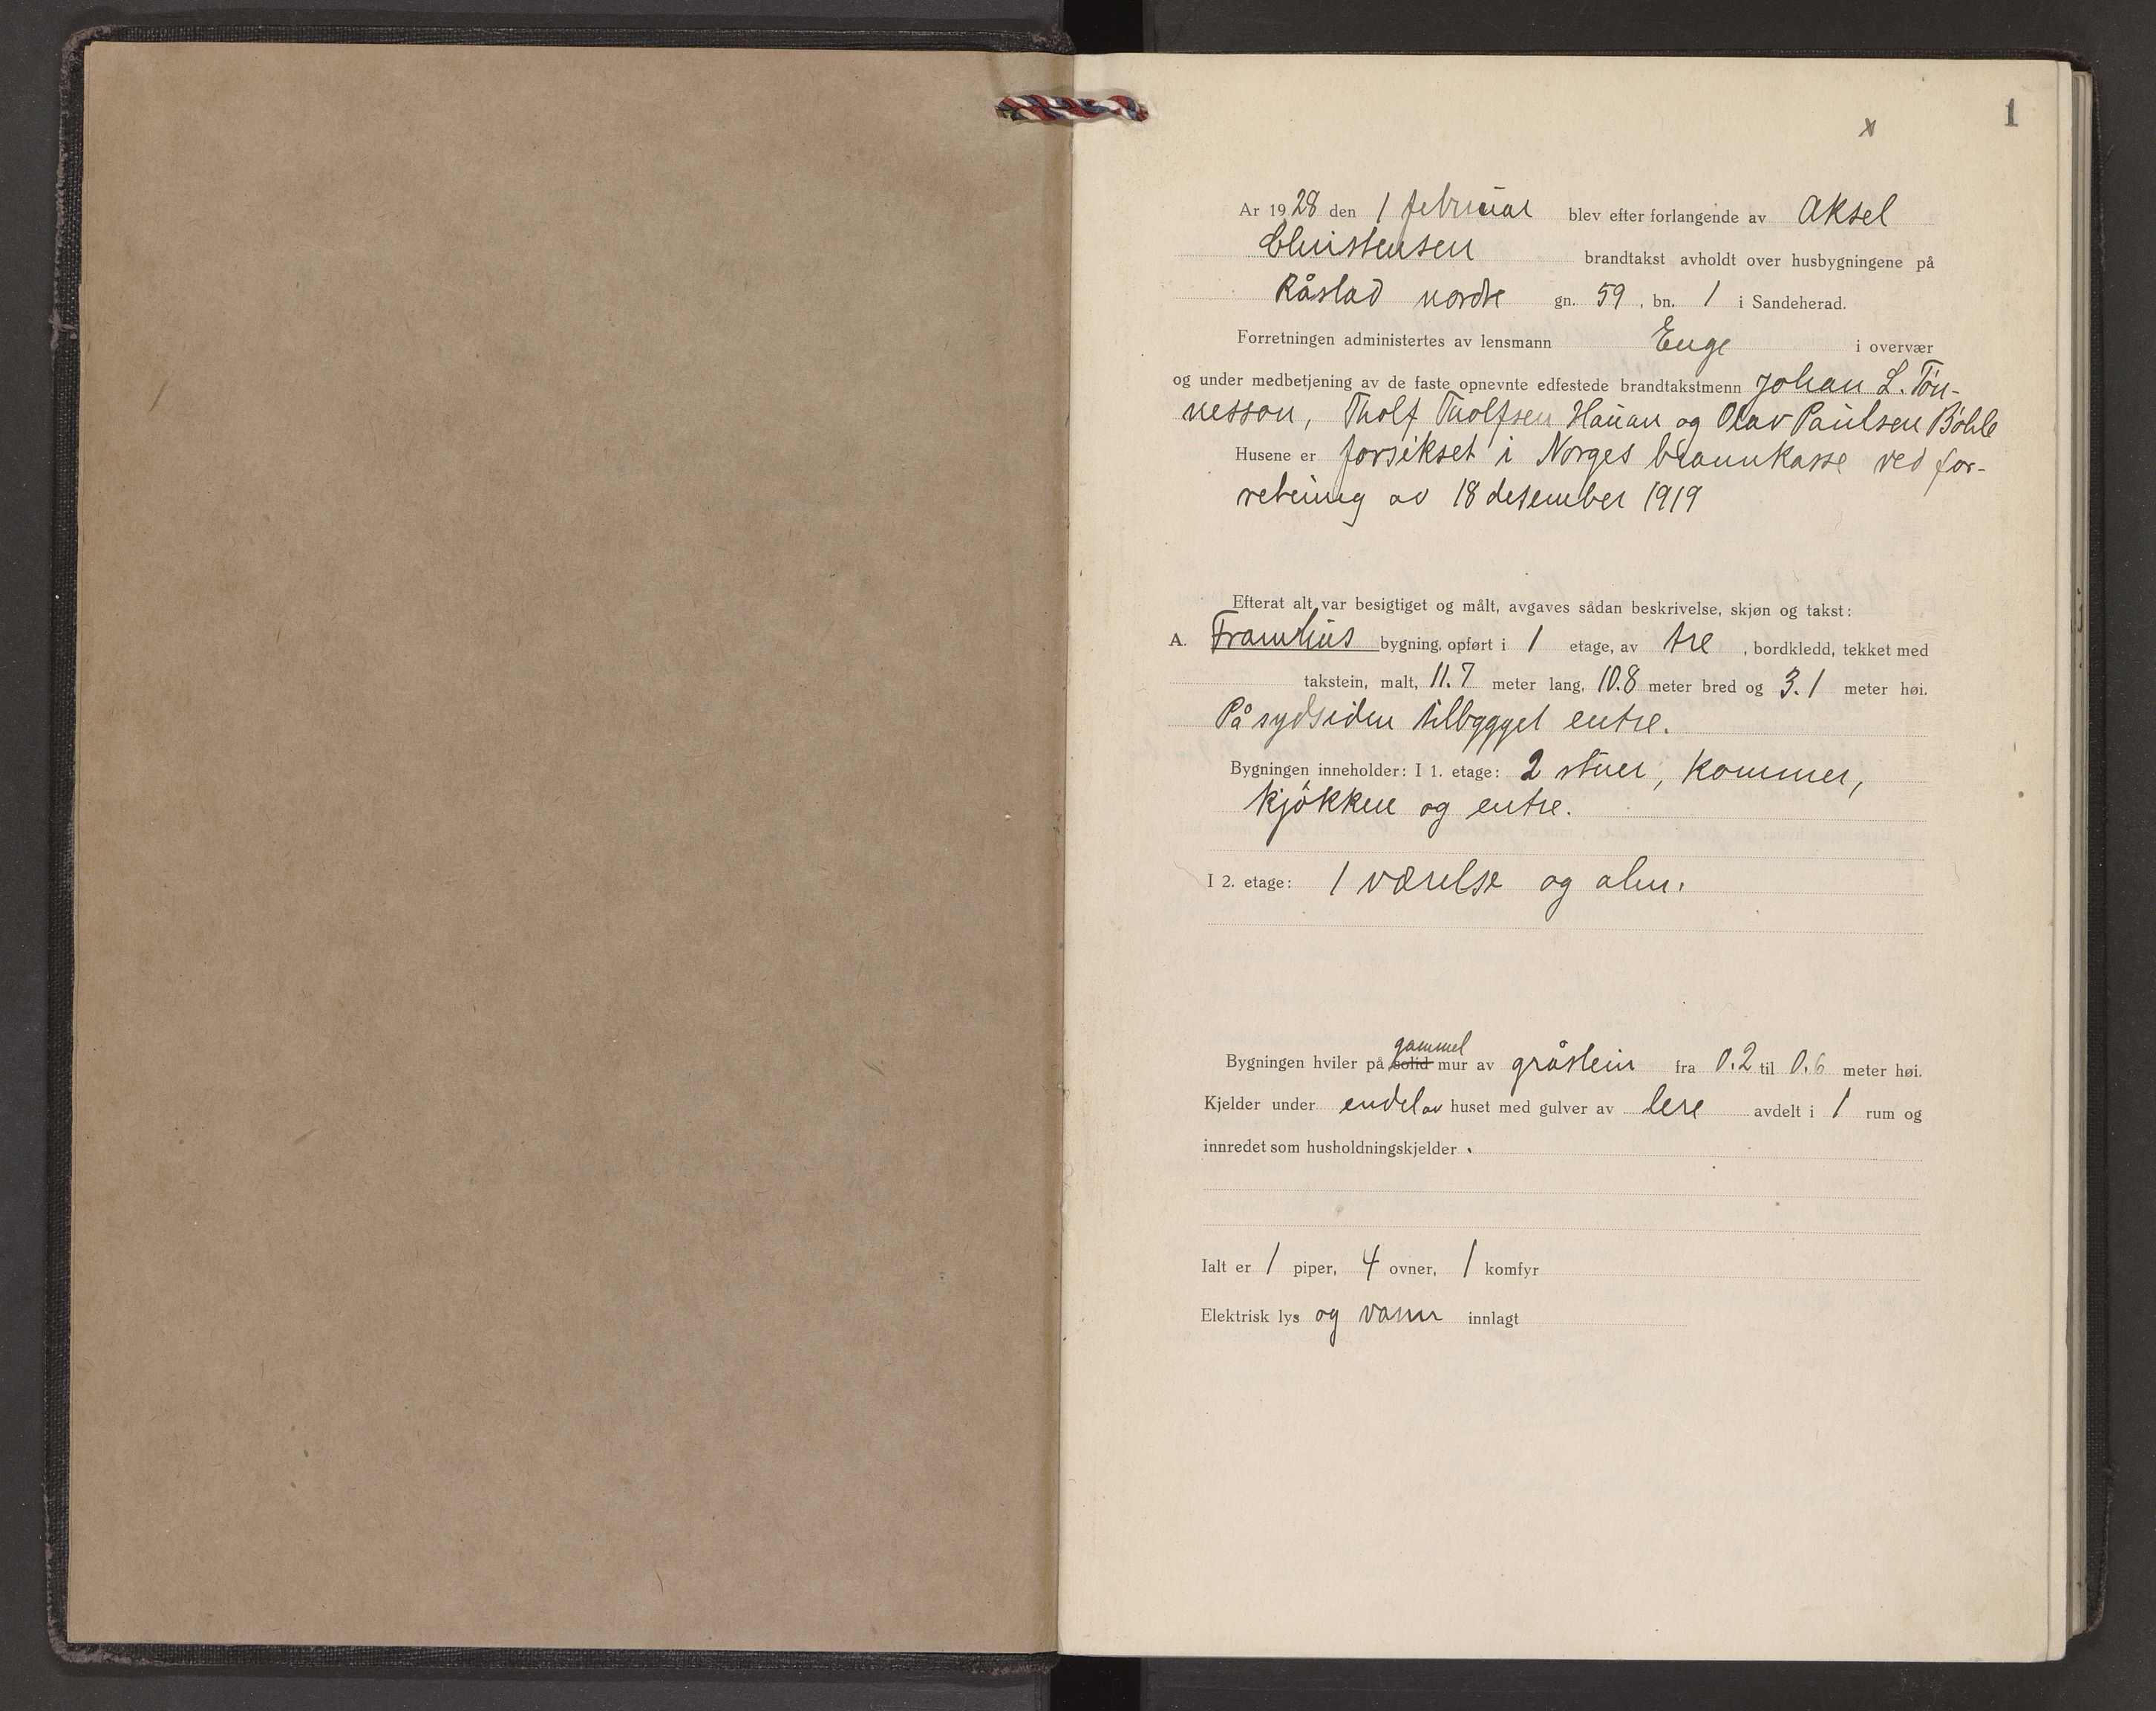 1
x
Ar 1928 den 1 februar blev efter forlangende av Aksel
Christensen brandtakst avholdt over husbygningene på
Råstad nordre gn. 59, bn. 1 i Sandeherad.
Forretningen administertes av lensmann Enge i overvær
og under medbetjening av de faste opnevnte edfestede brandtakstmenn Johan L. Tøn-
nesson, Tholf Tholfsen Hauan og Olav Paulsen Bøhle
Husene er forsikset i Norges brannkasse ved for-
retning av 18 desember 1919
Efterat alt var besigtiget og målt, avgaves sådan beskrivelse, skjøn og takst:
A. Framhus bygning, opført i 1 etage, av tre, bordkledd, tekket med
takstein, malt, 11.7 meter lang, 10.8 meter bred og 3.1 meter høi.
På sydsiden tilbygget entre.
Bygningen inneholder: I 1. etage: 2 stuer, kammer,
kjøkken og entre.
I 2. etage: 1 værelse og alm.
gammel
Bygningen hviler på solid mur av gråstein fra 0.2 til 0.6 meter høi.
Kjelder under endel av huset med gulver av lere avdelt i 1 rum og
innredet som husholdningskjelder.
Ialt er 1 piper, 4 ovner, 1 komfyr
Elektrisk lys og vann innlagt